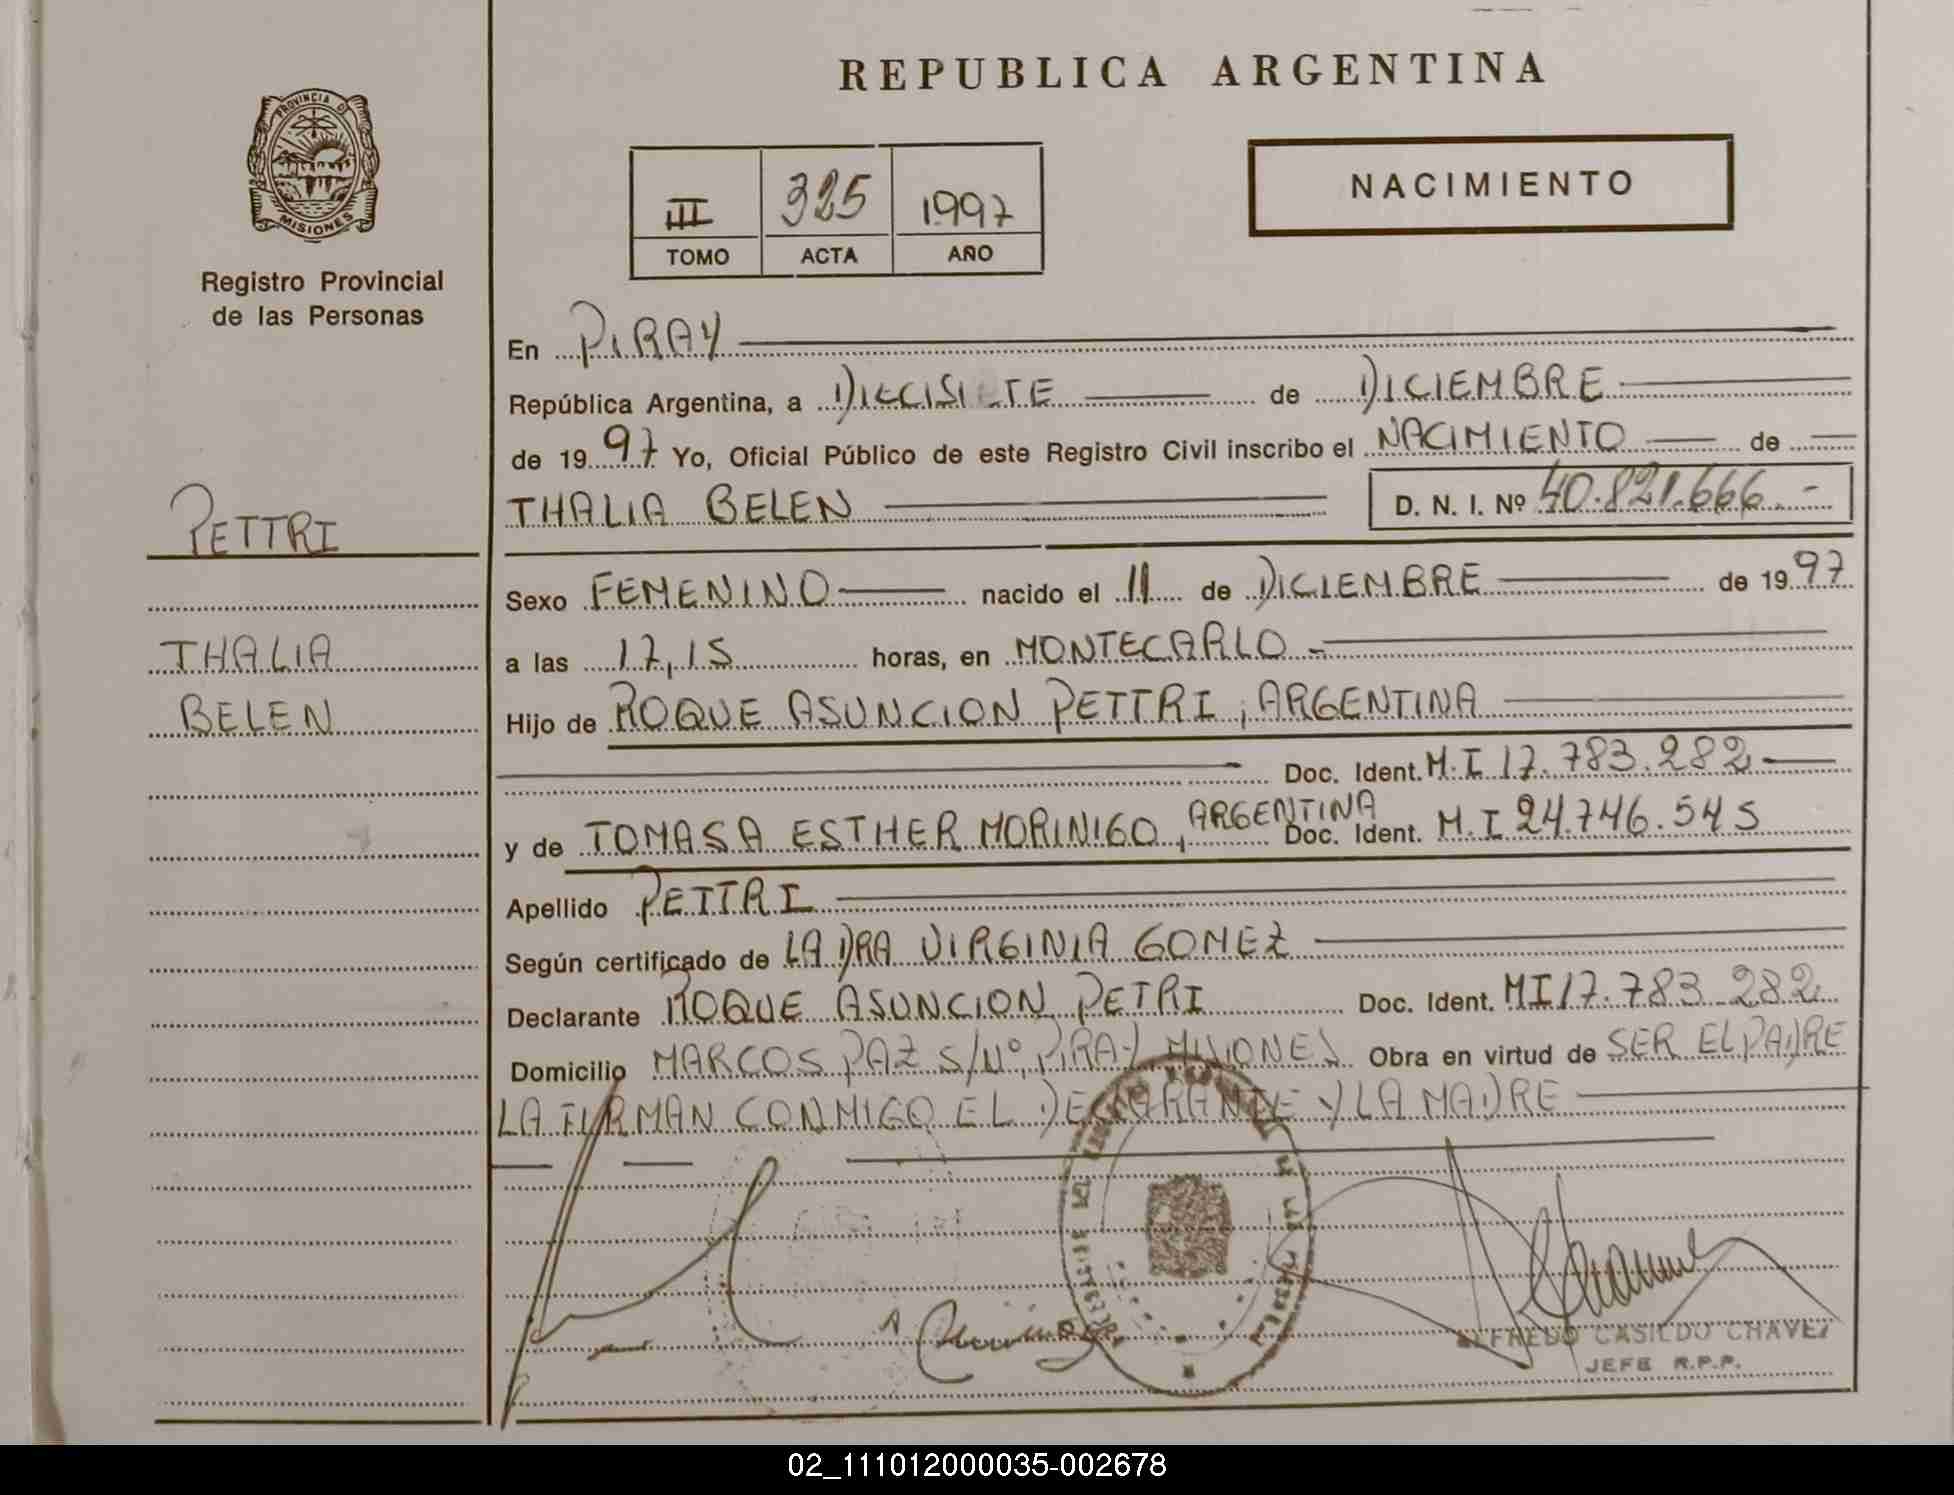 REPUBLICA ARGENTINA
PROVINCIA D
MISIONES
Registro Provincial
de las Personas
III 325 1997
TOMO ACTA AÑO
NACIMIENTO
En PIRAY
República Argentina, a DIECISIETE de DICIEMBRE
de 1997 Yo, Oficial Público de este Registro Civil inscribo el NACIMIENTO de
THALIA BELEN D. N. I. Nº 40.821.666.-
PETTRI
THALIA
BELEN
Sexo FEMENINO nacido el 11 de DICIEMBRE de 1997
a las 17,15 horas, en MONTECARLO.-
Hijo de ROQUE ASUNCION PETTRI, ARGENTINA
Doc. Ident. M.I 17.783.282
y de TOMASA ESTHER MORINIGO, ARGENTINA Doc. Ident. M.I 24.746.545
Apellido PETTRI
Según certificado de LA DRA VIRGINIA GOMEZ
Declarante ROQUE ASUNCION PETRI Doc. Ident. MI 17.783.282
Domicilio MARCOS PAZ S/Nº, PIRAY MISIONES Obra en virtud de SER EL PADRE
LA FIRMAN CONMIGO EL DECLARANTE Y LA MADRE
ALFREDO CASILDO CHAVEZ
JEFE R.P.P.
02_111012000035-002678